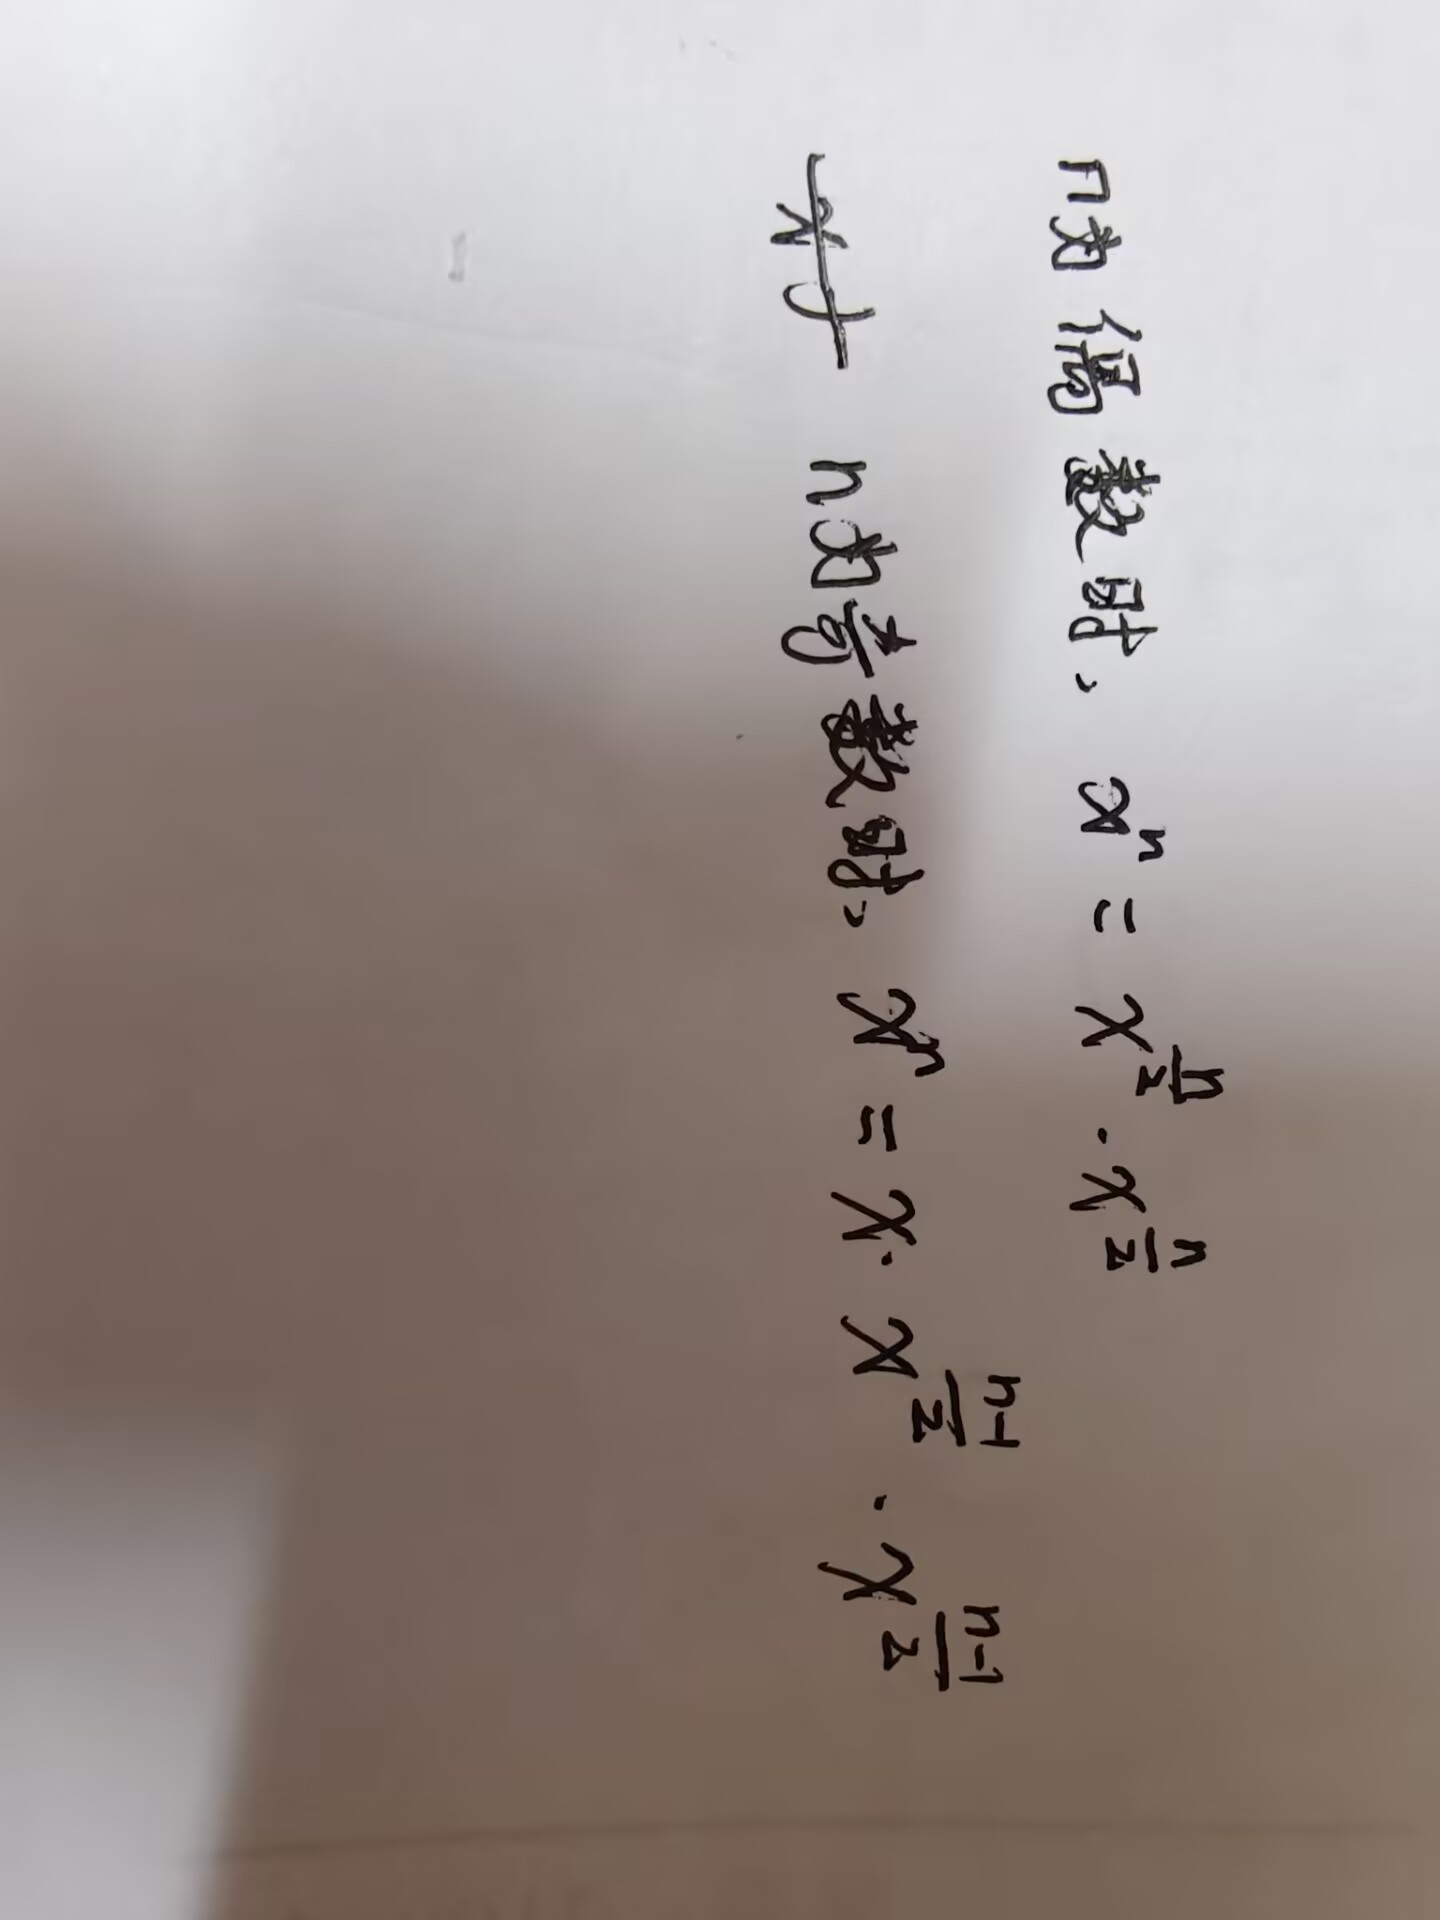 n为偶数时, xⁿ = x^(n/2) · x^(n/2)
n为奇数时, xⁿ = x · x^((n-1)/2) · x^((n-1)/2)